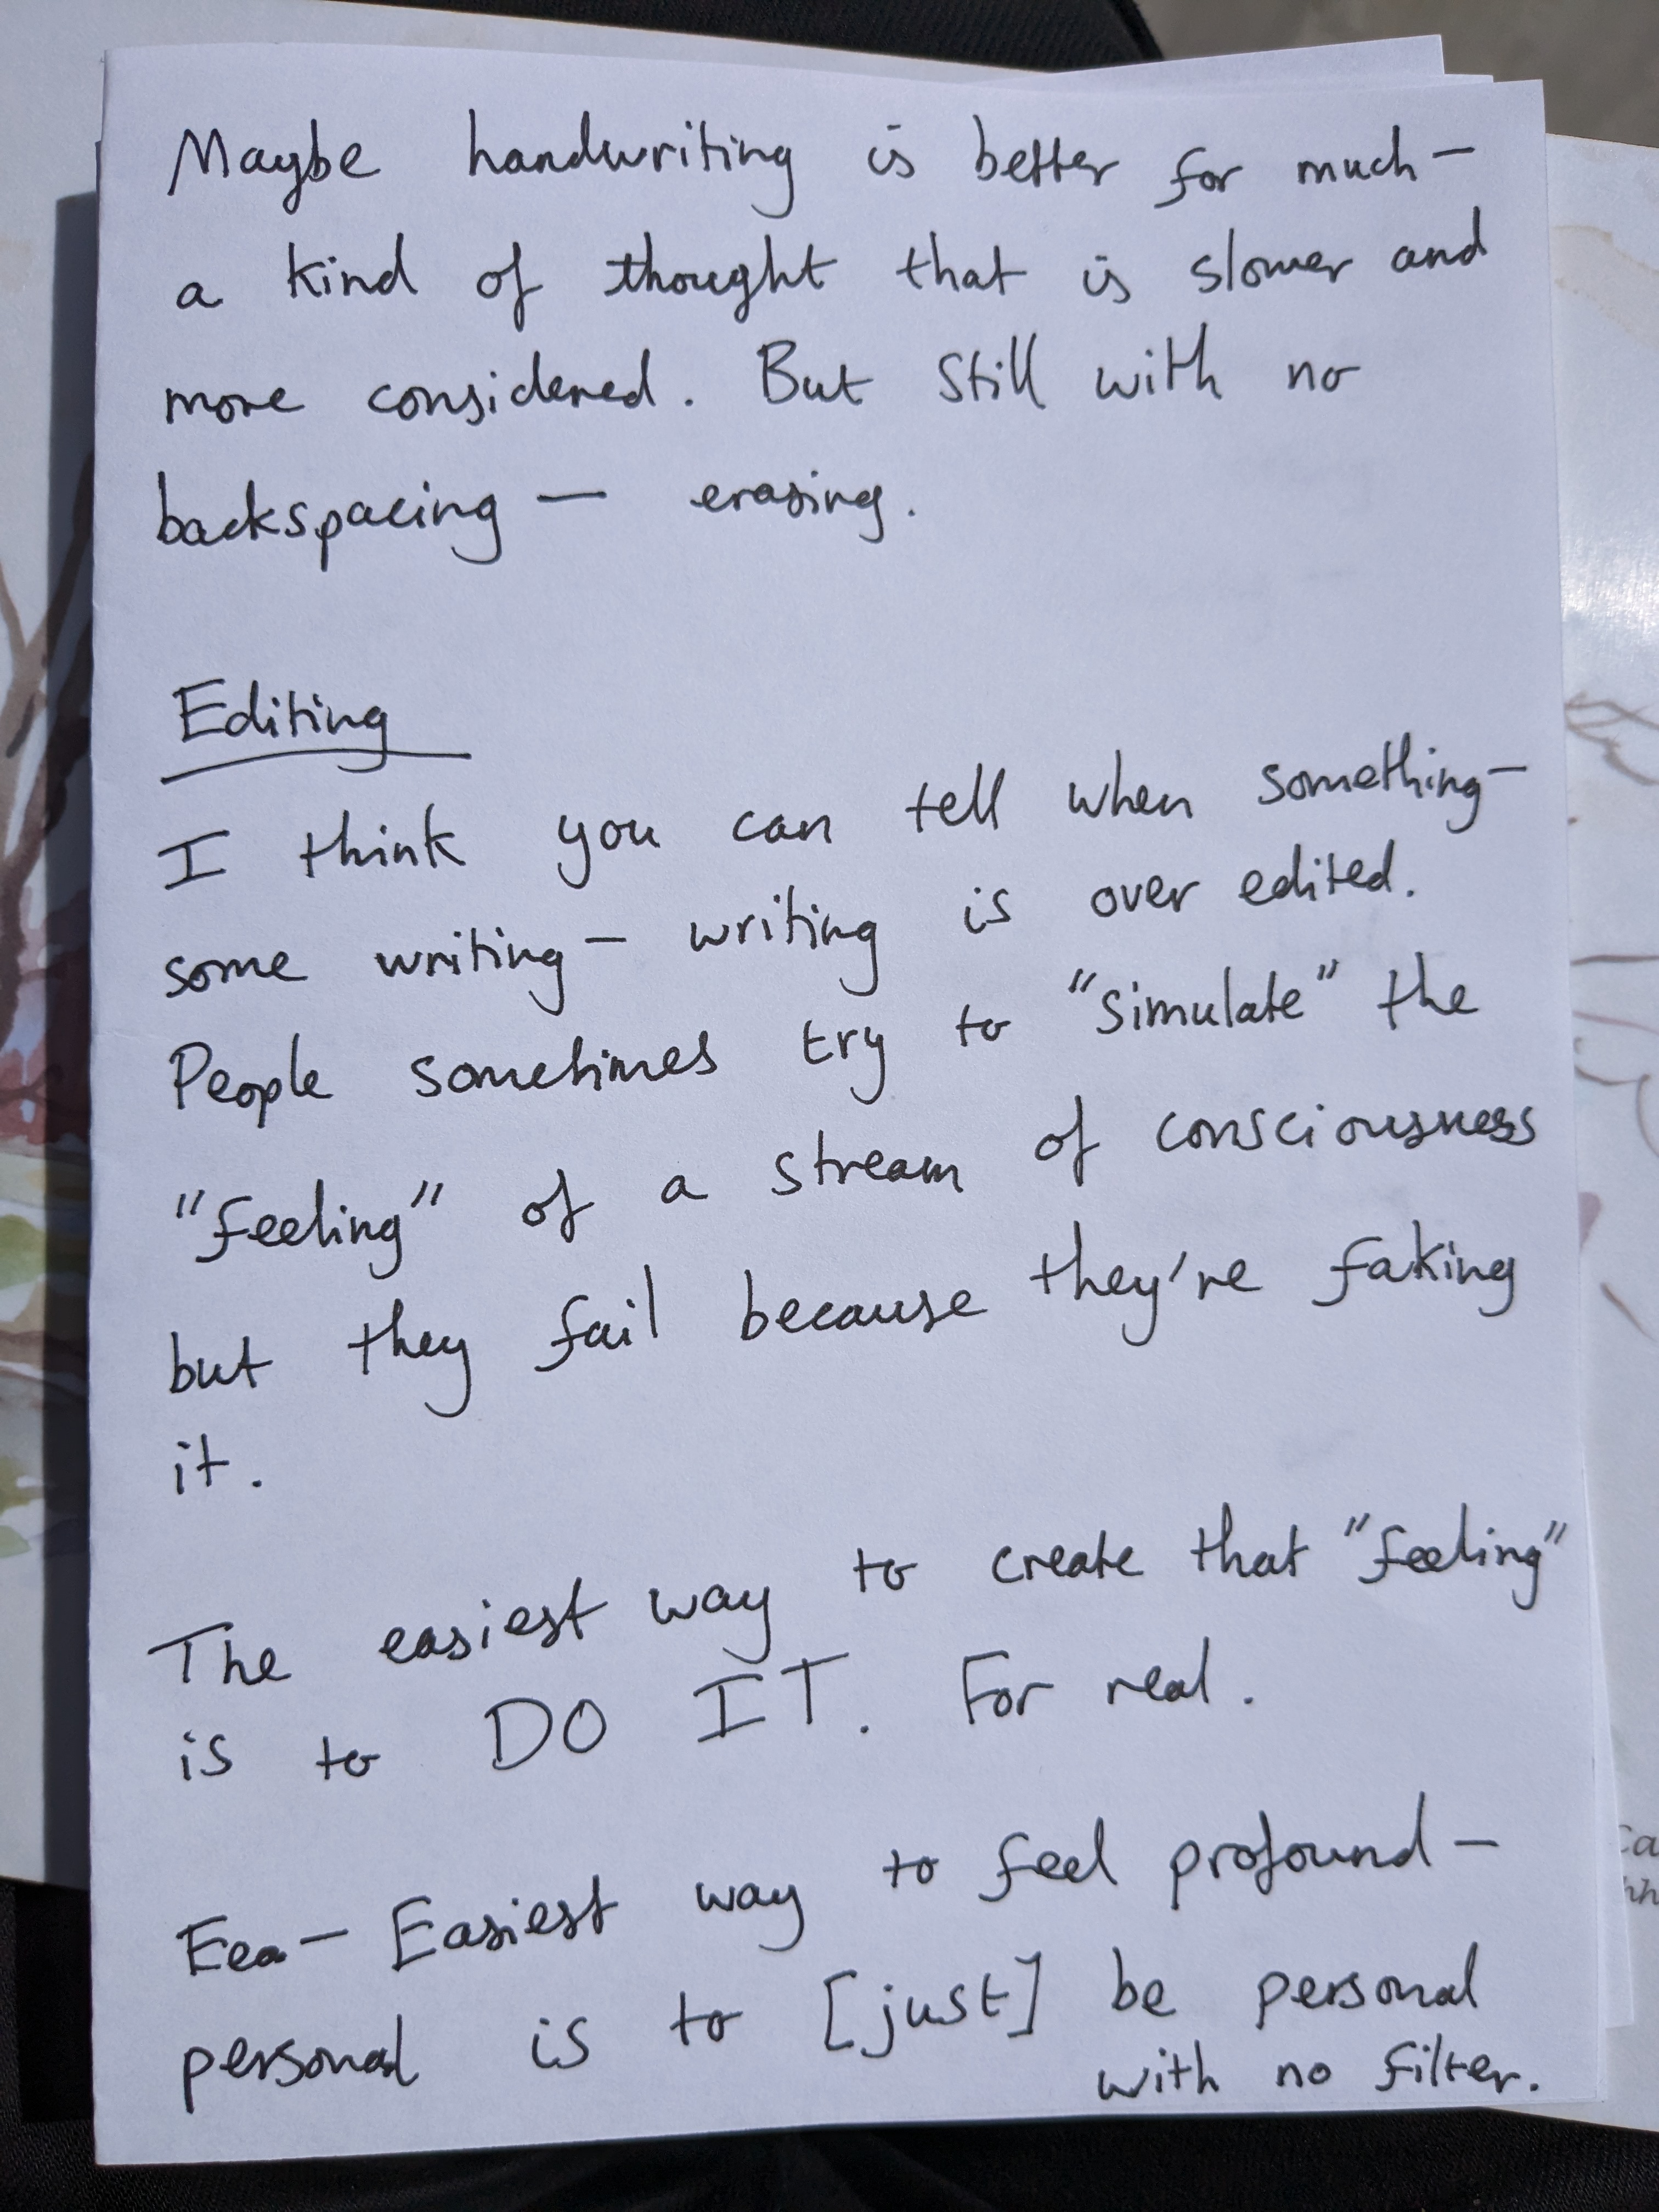 Maybe handwriting is better for much—
a kind of thought that is slower and
more considered. But still with no
backspacing — erasing.
Editing
I think you can tell when something—
some writing — writing is over edited.
People sometimes try to "simulate" the
"feeling" of a stream of consciousness
but they fail because they're faking
it.
The easiest way to create that "feeling"
is to DO IT. For real.
Eea— Easiest way to feel profound —
personal is to [just] be personal
with no filter.